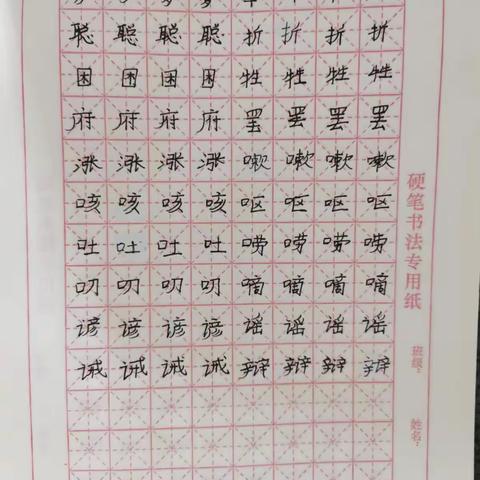 聪聪聪聪折折折折
困困困困牲牲牲牲
府府府府罢罢罢罢
涨涨涨涨嗽嗽嗽嗽
咳咳咳咳呕呕呕呕
吐吐吐吐唠唠唠唠
叨叨叨叨嘀嘀嘀嘀
谚谚谚谚谣谣谣谣
诫诫诫诫辩辩辩辩
硬笔书法专用纸
班级：
姓名：